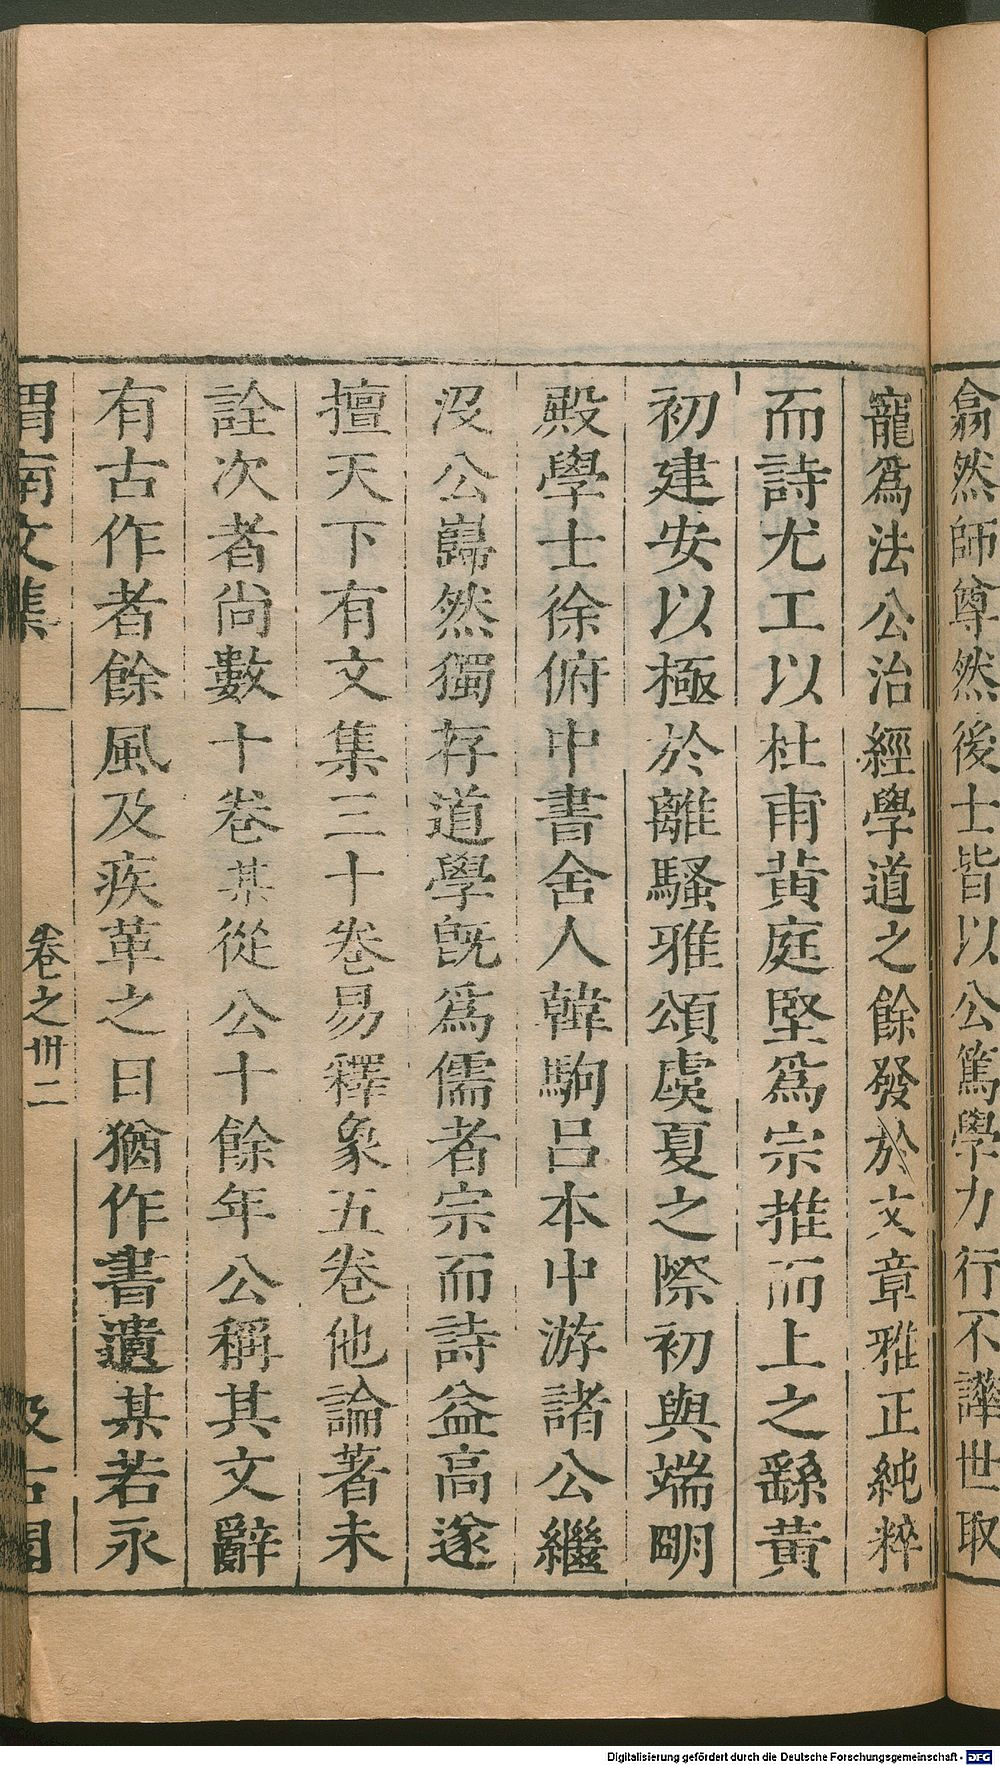 翕然師尊然後士皆以公篤學力行不譁世取
寵爲法公治經學道之餘發於文章雅正純粹
而詩尤工以杜甫黄庭堅爲宗推而上之繇黄
初建安以極於離騷雅頌虞夏之際初與端明
殿學士徐俯中書舍人韓駒呂本中游諸公繼
沒公巋然獨存道學旣爲儒者宗而詩益高遂
擅天下有文集三十卷易釋象五卷他論著未
詮次者尚數十卷某從公十餘年公稱其文辭
有古作者餘風及疾革之日猶作書遺某若永
渭南文集 卷之卅二 汲古閣
Digitalisierung gefördert durch die Deutsche Forschungsgemeinschaft - DFG